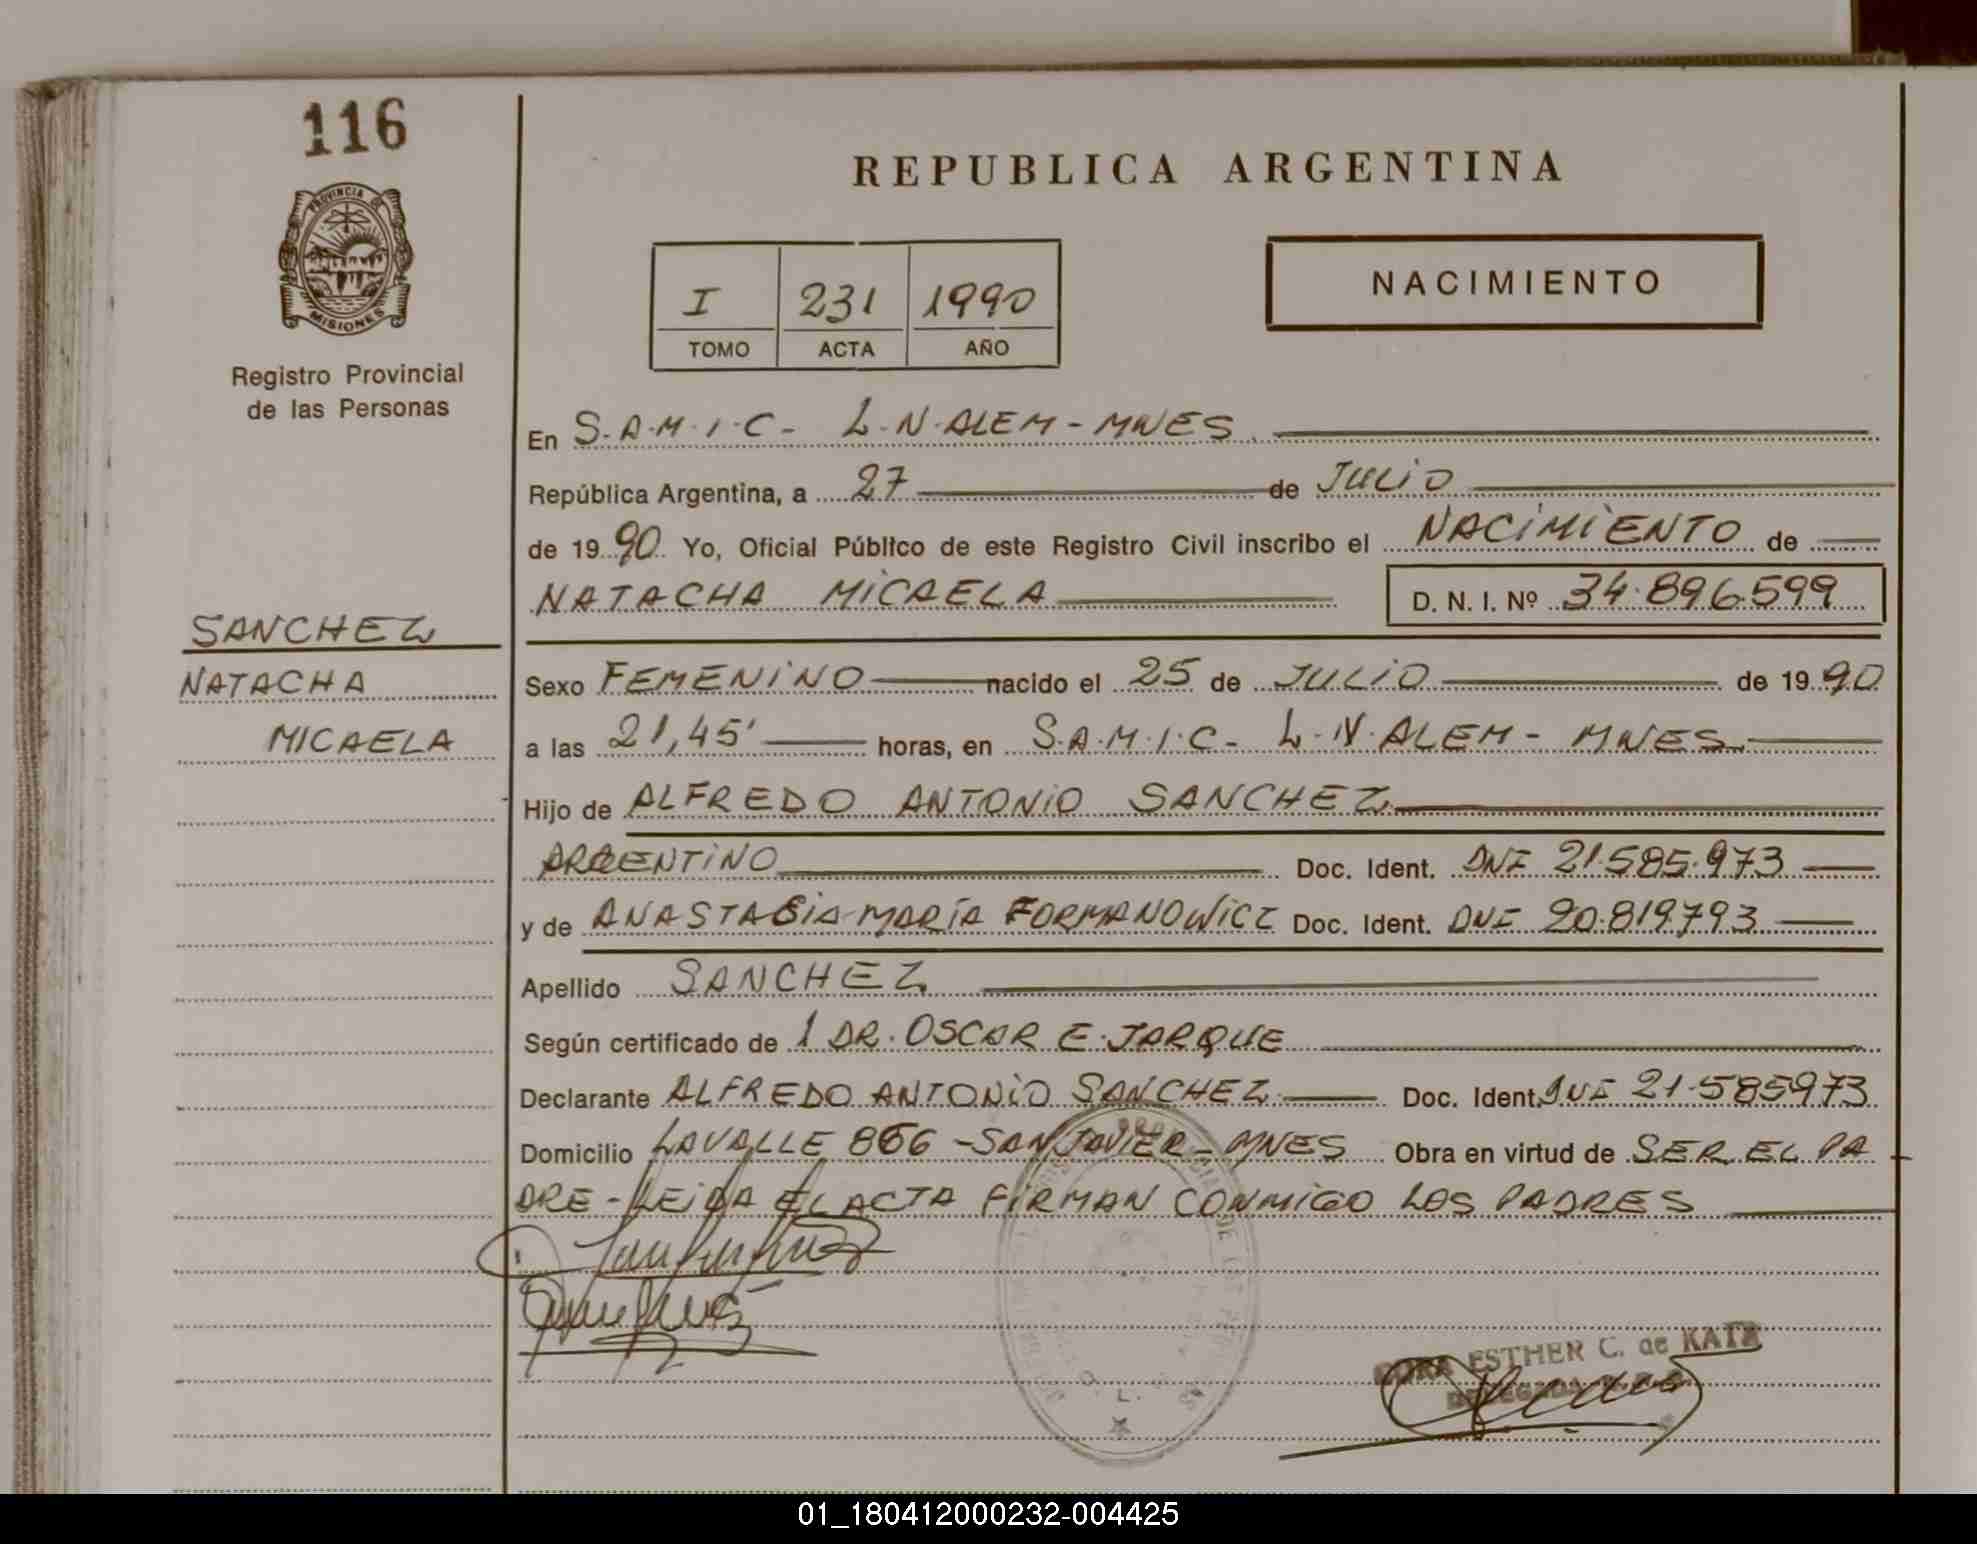 116
REPUBLICA ARGENTINA
PROVINCIA DE
MISIONES
NACIMIENTO
I 231 1990
TOMO ACTA AÑO
Registro Provincial
de las Personas
En S.A.M.I.C- L.N.ALEM-MNES
República Argentina, a 27 de JULIO
de 1990 Yo, Oficial Público de este Registro Civil inscribo el NACIMIENTO de
NATACHA MICAELA D. N. I. Nº 34.896.599
SANCHEZ
NATACHA
MICAELA
Sexo FEMENINO nacido el 25 de JULIO de 1990
a las 21,45' horas, en S.A.M.I.C- L.N.ALEM- MNES
Hijo de ALFREDO ANTONIO SANCHEZ
ARGENTINO Doc. Ident. DNI 21.585.973
y de ANASTASIA MARÍA FORMANOWICZ Doc. Ident. DNI 20.819.793
Apellido SANCHEZ
Según certificado de 1 DR. OSCAR E. JARQUE
Declarante ALFREDO ANTONIO SANCHEZ Doc. Ident. DNI 21.585973
Domicilio LAVALLE 866 -SAN JAVIER- MNES Obra en virtud de SER EL PA
DRE - LEIDA EL ACTA FIRMAN CONMIGO LOS PADRES
ESTHER C. de KATZ
DELEGADA
01_180412000232-004425